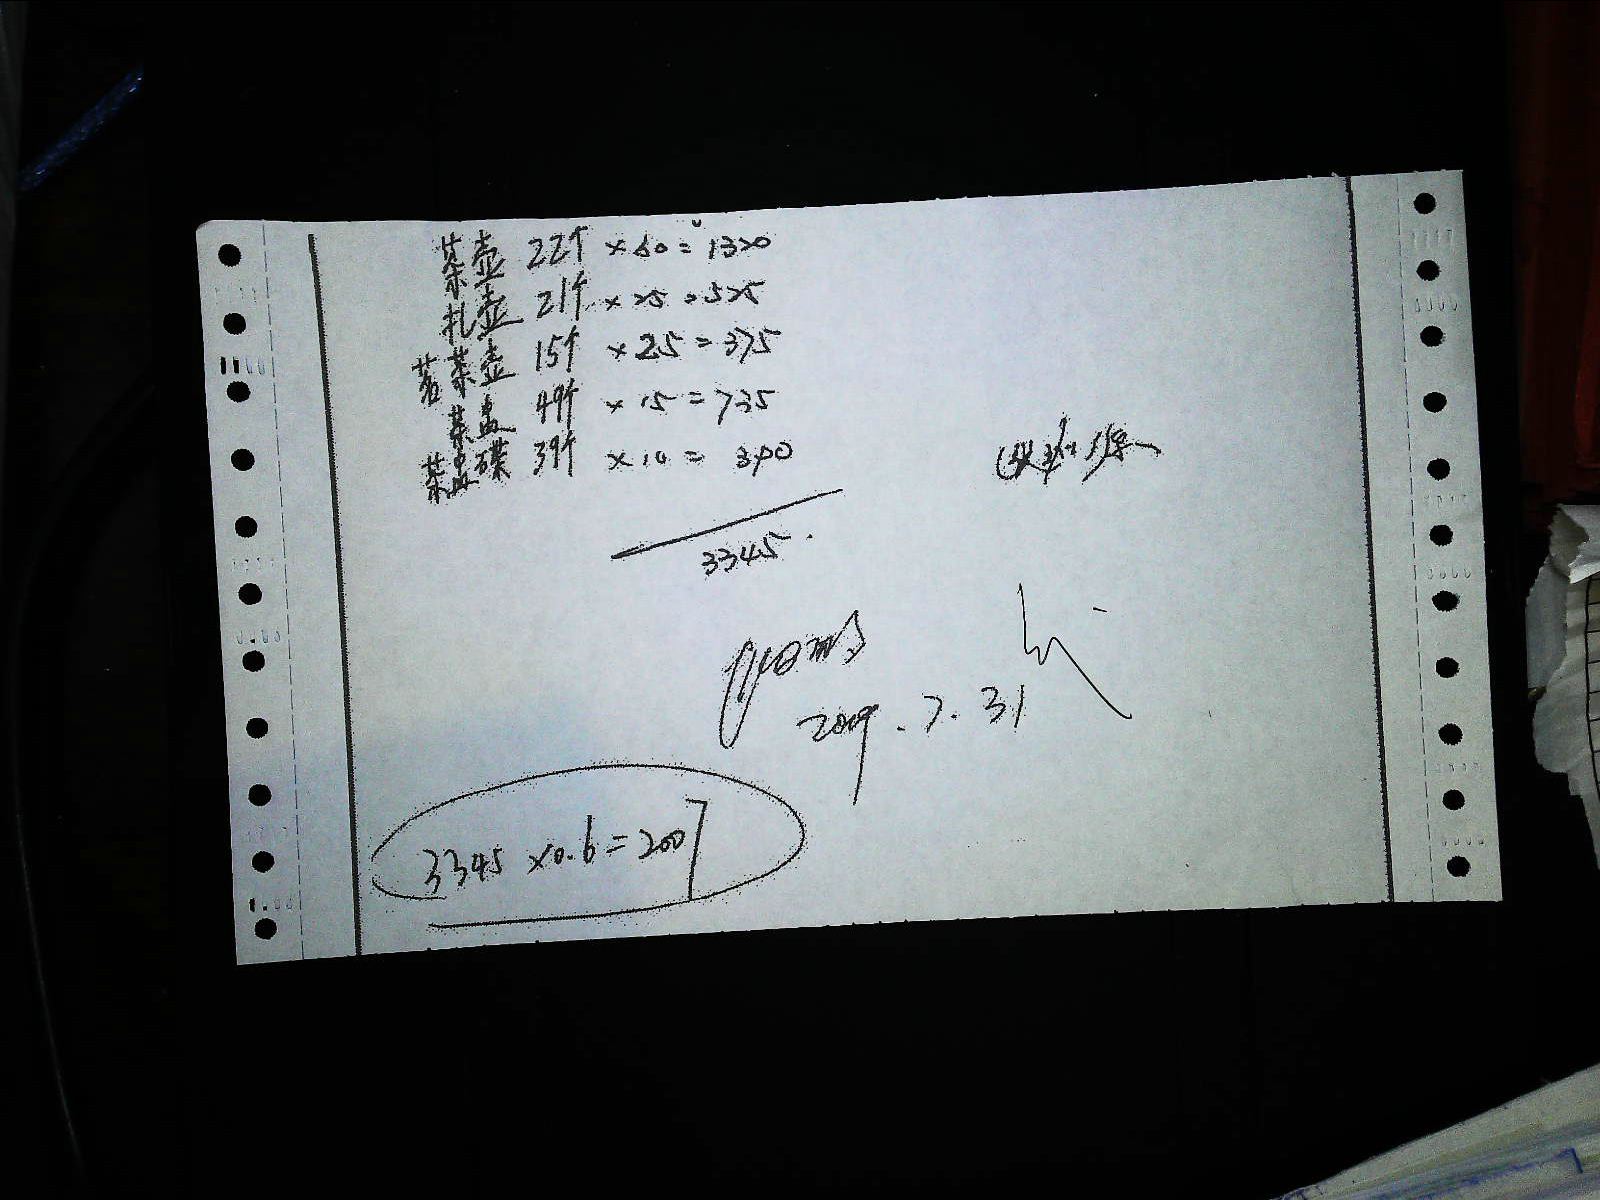 茶壶 22个 ×60=1320
扎壶 21个 ×25=525
茗茶壶 15个 ×25=375
茶盅 49个 ×15=735
茶盅碟 39个 ×10= 390
3345
2009.7.31
3345 ×0.6=2007